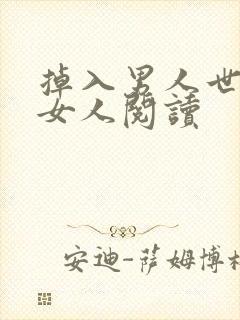 掉入男人世
女人閱讀
安迪-萨姆博